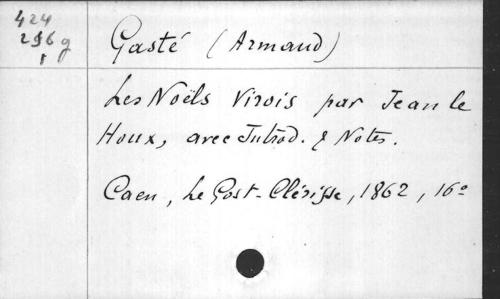 424
296 g
1
Gasté (Armand)
Les Noëls Virois par Jean le
Houx, avec Introd. & Notes.
Caen, Le Gost-Clérisse, 1862, 16º